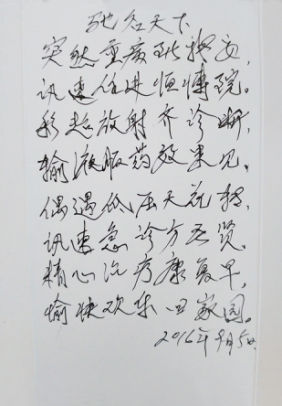 驰名天下
突然重度眩晕症,
讯速住进恒博院。
彩超放射齐诊断,
输液服药效果见。
偶遇低压天花转,
讯速急诊方不贤。
精心治疗康复早,
愉快欢乐回家园。
2016年9月5日